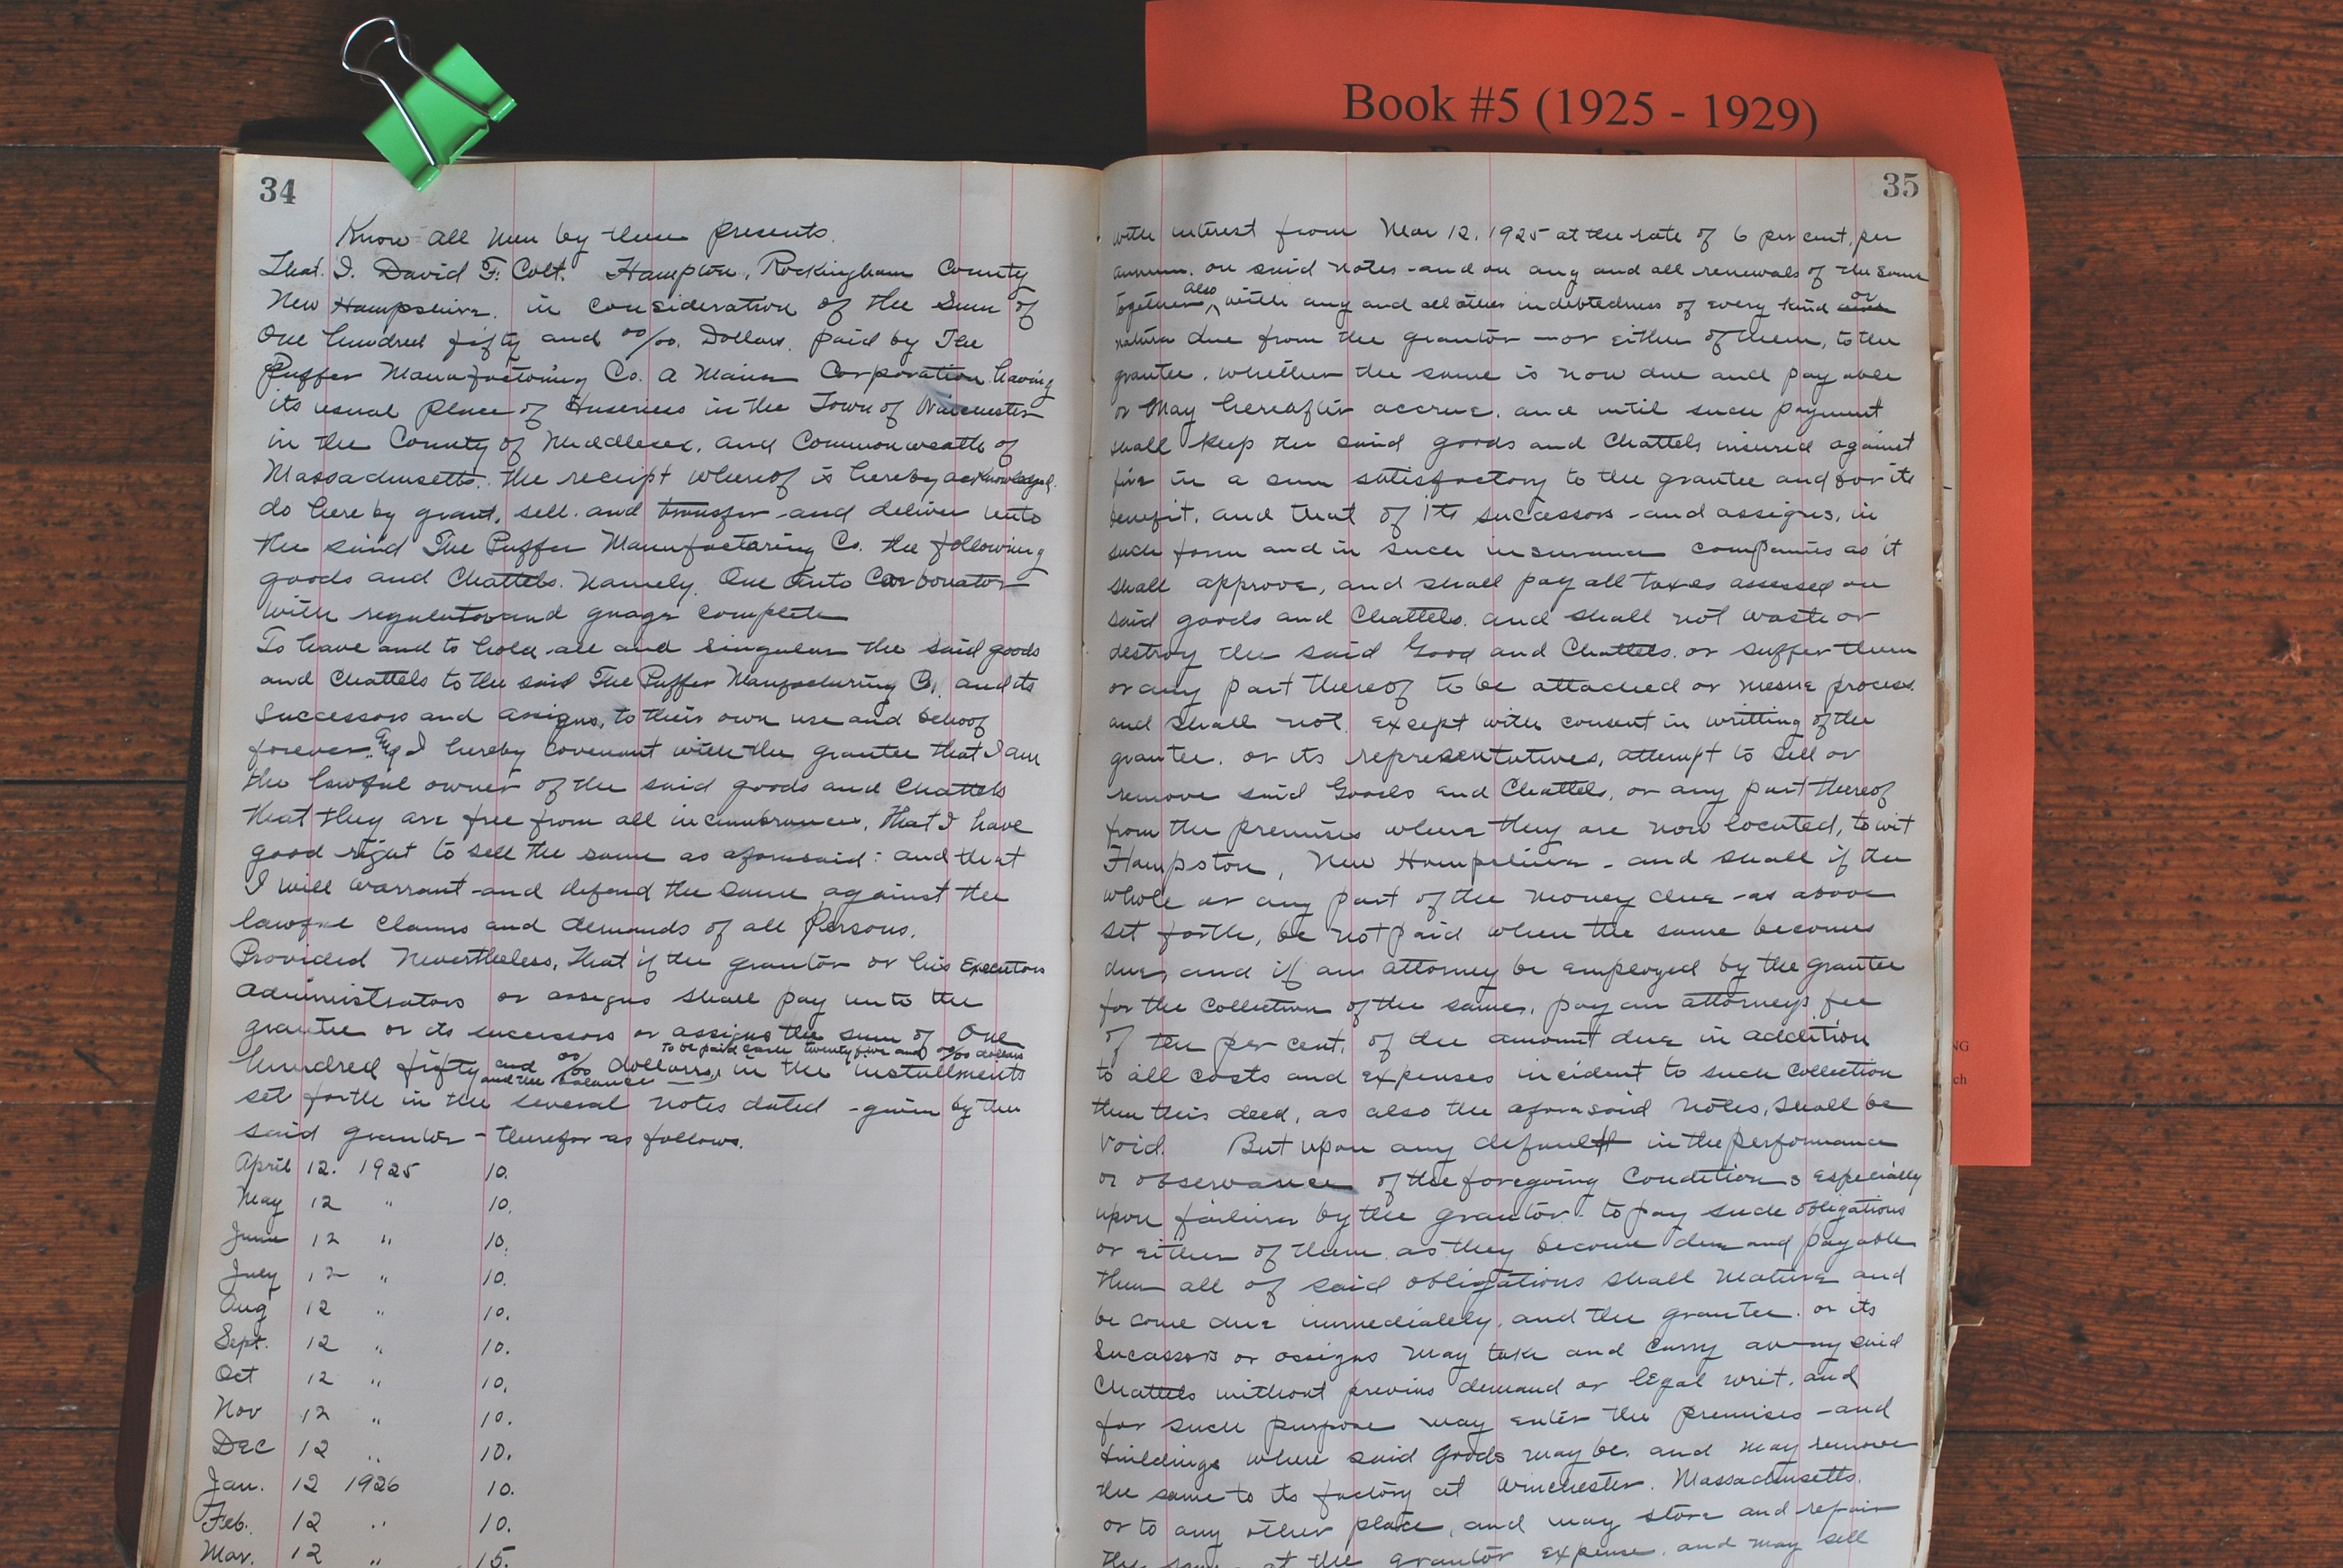 Book #5 (1925 - 1929)
34
Know all men by these presents.
That. I. David F. Colt. Hampton, Rockingham County
New Hampshire. in consideration of the Sum of
One hundred fifty and 00/00. Dollars. paid by The
Puffer Manufactoring Co. a Maine Corporation having
its usual place of Buseness in the Town of Winchester
in the County of Middlesex. and Commonwealth of
Massachusetts. the receipt whereof is hereby acknowledged.
do here by grant, sell. and transfer and deliver unto
the said The Puffer Manufactoring Co. the following
goods and Chattels. Namely. One Auto Carbonator
with regulator and guage complete
To have and to hold all and singular the said goods
and Chattels to the said The Puffer Manufacturing Co. and its
Successors and assigns, to their own use and behoof
forever. And I hereby covenant with the grantee that I am
the lawful owner of the said goods and Chattels
that they are free from all incumbrances, that I have
good right to sell the same as aforesaid: and that
I will warrant and defend the same against the
lawful claims and demands of all Persons.
Provided Nevertheless, That if the grantor or his Executors
administrators or assigns shall pay unto the
grantee or its successors or assigns the sum of One
to be paid cash twenty five and 00/00 dollars
hundred fifty and 00/00 dollars, in the installments
and the balance
set forth in the several notes dated - given by the
said grantor - therefor as follows.
April 12. 1925 10.
May 12 " 10.
June 12 " 10.
July 12 " 10.
Aug 12 " 10.
Sept. 12 " 10.
Oct 12 " 10.
Nov 12 " 10.
Dec 12 " 10.
Jan. 12 1926 10.
Feb. 12 " 10.
Mar. 12 " 15.
35
with interest from Mar 12, 1925 at the rate of 6 per cent, per
annum. on said notes - and on any and all renewals of the same
together also with any and all other indebtedness of every kind or
nature due from the grantor - or either of them, to the
grantee. whether the same is now due and payable
or may hereafter accrue. and until such payment
shall keep the said goods and Chattels insured against
fire in a sum satisfactory to the grantee and for its
benefit, and that of its successors and assigns, in
such form and in such insurance companies as it
shall approve, and shall pay all taxes assessed on
said goods and Chattels. and shall not waste or
destroy the said Good and Chattels. or suffer them
or any part thereof to be attached or mesne process
and shall not. Except with consent in writting of the
grantee. or its representatives, attempt to sell or
remove said Goods and Chattels, or any part thereof
from the premises where they are now located, to wit
Hampston, New Hampshire - and shall if the
whole or any part of the money due as above
set forth, be not paid when the same becomes
due, and if an attorney be employed by the grantee
for the collection of the same, pay an attorneys fee
of ten per cent. of the amount due in addition
to all costs and expenses incident to such collection
then this deed, as also the aforesaid notes, shall be
void. But upon any default in the performance
or observance of the foregoing Conditions especially
upon failure by the grantor. to pay such obligations
or either of them as they become due and payable
then all of said obligations shall mature and
be come due immediately. and the grantee. or its
Sucessors or assigns may take and carry away said
Chattels without previus demand or legal writ. and
for such purpose may enter the premises - and
buildings where said Goods may be. and may remove
the same to its factory at Winchester. Massachusetts.
or to any other place, and may store and repair
the same at the grantor expense. and may sell
NG
ch